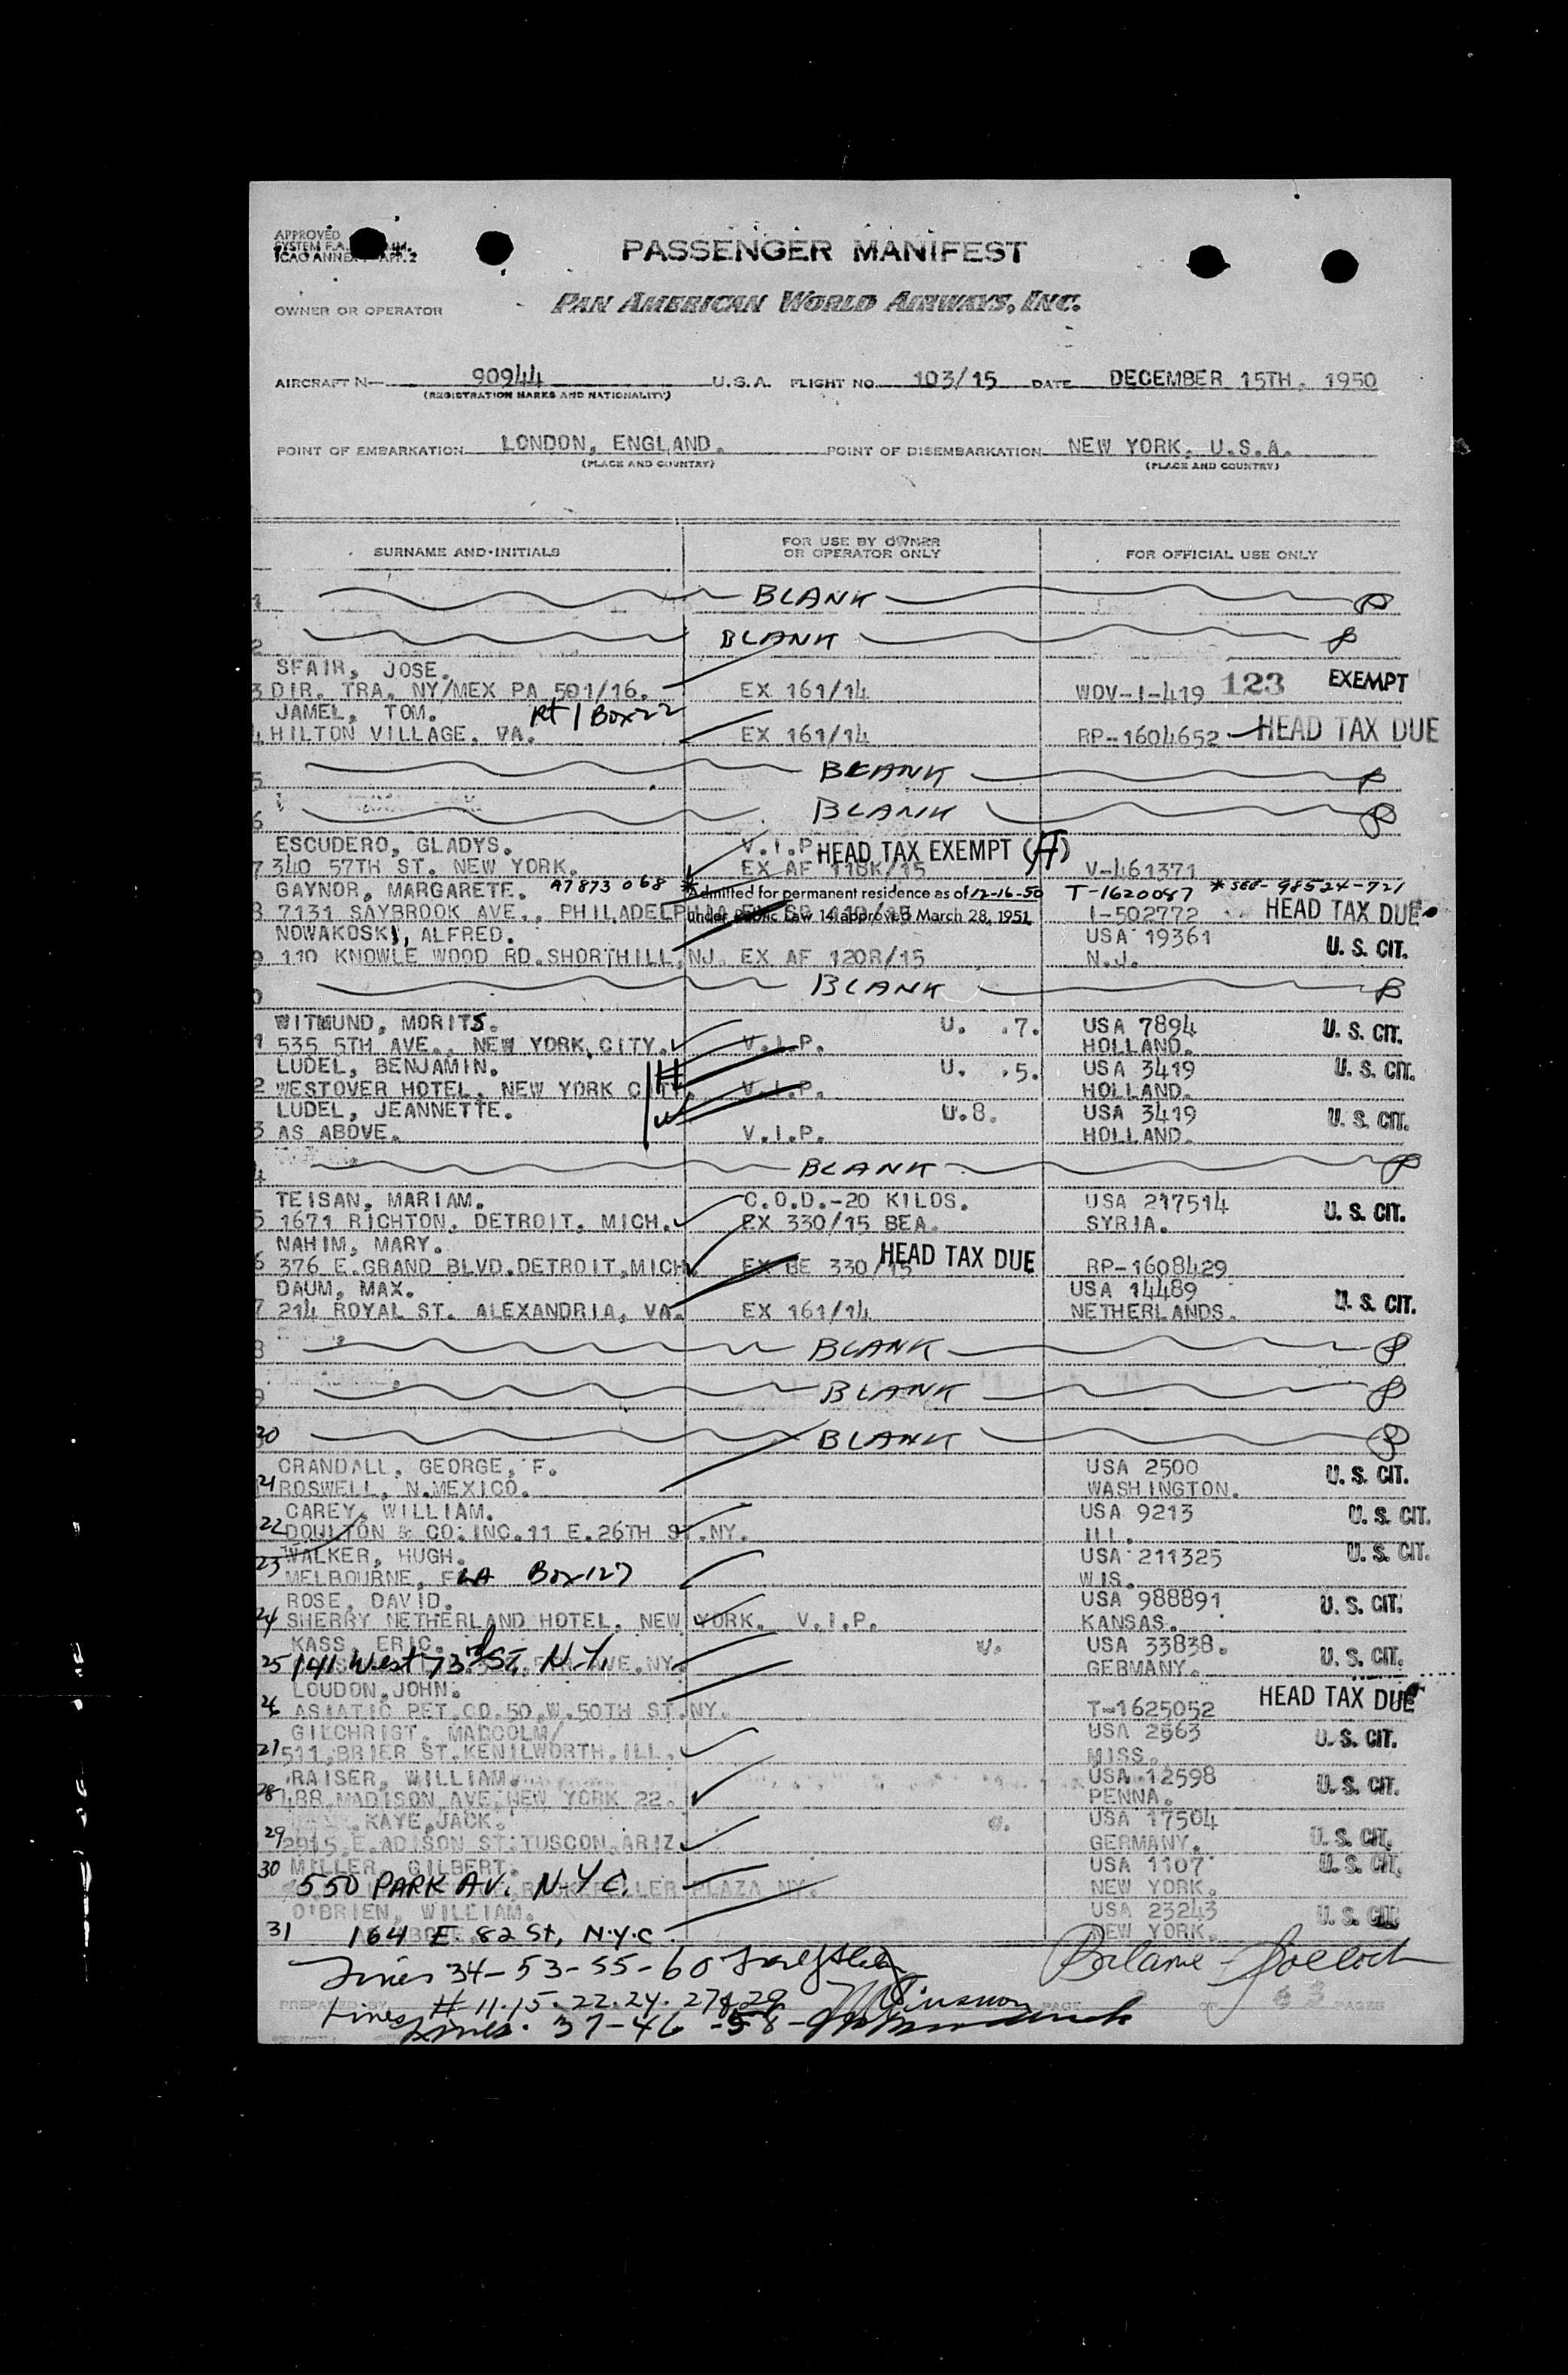 APPROVED
SYSTEM F.A.
ICAO ANNEX
PASSENGER MANIFEST
OWNER OR OPERATOR PAN AMERICAN WORLD AIRWAYS, INC.
AIRCRAFT N— 90944 U.S.A. FLIGHT NO. 103/15 DATE DECEMBER 15TH. 1950
(REGISTRATION MARKS AND NATIONALITY)
POINT OF EMBARKATION LONDON, ENGLAND. POINT OF DISEMBARKATION NEW YORK. U.S.A.
(PLACE AND COUNTRY) (PLACE AND COUNTRY)
SURNAME AND INITIALS FOR USE BY OWNER OR OPERATOR ONLY FOR OFFICIAL USE ONLY
1 BLANK
2 BLANK
SFAIR, JOSE.
3 DIR. TRA. NY/MEX PA 501/16. EX 161/14 WOV-I-419 123 EXEMPT
JAMEL, TOM. Rt 1 Box 22
4 HILTON VILLAGE. VA. EX 161/14 RP-1604652 HEAD TAX DUE
5 BLANK
6 BLANK
ESCUDERO, GLADYS. V.I.P. HEAD TAX EXEMPT (A)
7 340 57TH ST. NEW YORK. EX AF 118K/15 V-461371
GAYNOR, MARGARETE. A7873 068 * Admitted for permanent residence as of 12-16-50 T-1620087 * SEE- 98524-721
8 7131 SAYBROOK AVE., PHILADELPHIA under Public Law 14 approved March 28, 1951 I-502772 HEAD TAX DUE
NOWAKOSKI, ALFRED. USA 19361
9 110 KNOWLE WOOD RD.SHORTHILL,NJ. EX AF 120R/15 N.J. U. S. CIT.
0 BLANK
WITMUND, MORITS. U. .7. USA 7894 U. S. CIT.
1 535 5TH AVE., NEW YORK CITY. V.I.P. HOLLAND.
LUDEL, BENJAMIN. U. .5. USA 3419 U. S. CIT.
2 WESTOVER HOTEL, NEW YORK CITY. V.I.P. HOLLAND.
LUDEL, JEANNETTE. U.8. USA 3419 U. S. CIT.
3 AS ABOVE. V.I.P. HOLLAND.
4 BLANK
TEISAN, MARIAM. C.O.D.-20 KILOS. USA 217514
5 1671 RICHTON. DETROIT. MICH. EX 330/15 BEA. SYRIA. U. S. CIT.
NAHIM, MARY. HEAD TAX DUE
6 376 E.GRAND BLVD.DETROIT.MICH. EX BE 330/15 RP-1608429
DAUM, MAX. USA 14489
7 214 ROYAL ST. ALEXANDRIA, VA. EX 161/14 NETHERLANDS. U. S. CIT.
8 BLANK
9 BLANK
20 BLANK
CRANDALL, GEORGE, F. USA 2500
21 ROSWELL, N.MEXICO. WASHINGTON. U. S. CIT.
CAREY, WILLIAM. USA 9213
22 DOULTON & CO.INC.11 E.26TH ST.NY. ILL. U. S. CIT.
23 WALKER, HUGH. USA 211325 U. S. CIT.
MELBOURNE, FLA Box 127 WIS.
ROSE, DAVID. USA 988891
24 SHERRY NETHERLAND HOTEL, NEW YORK. V.I.P. KANSAS. U. S. CIT.
KASS, ERIC. U. USA 33838.
25 141 West 73rd St, N.Y. AVE.NY. GERMANY. U. S. CIT.
LOUDON,JOHN. HEAD TAX DUE
26 ASIATIC PET.CO.50.W.50TH ST.NY. T-1625052
GILCHRIST, MALCOLM/ USA 2563
27 511.BRIER ST.KENILWORTH.ILL. MISS. U. S. CIT.
RAISER, WILLIAM. USA 12598
28 488 MADISON AVE.NEW YORK 22. PENNA. U. S. CIT.
KAYE,JACK. USA 17504
29 2915.E.ADISON ST.TUSCON.ARIZ GERMANY. U. S. CIT.
30 MILLER, GILBERT. USA 1107 U. S. CIT.
550 PARK AV. N.Y.C. PLAZA NY. NEW YORK.
O'BRIEN, WILLIAM. USA 23243
31 164 E 82 St, N.Y.C. NEW YORK. U. S. CIT.
Lines 34-53-55-60
PREPARED BY Lines # 11.15.22.24.27&29 PAGE OF 3 PAGES
Lines. 37-46-58-